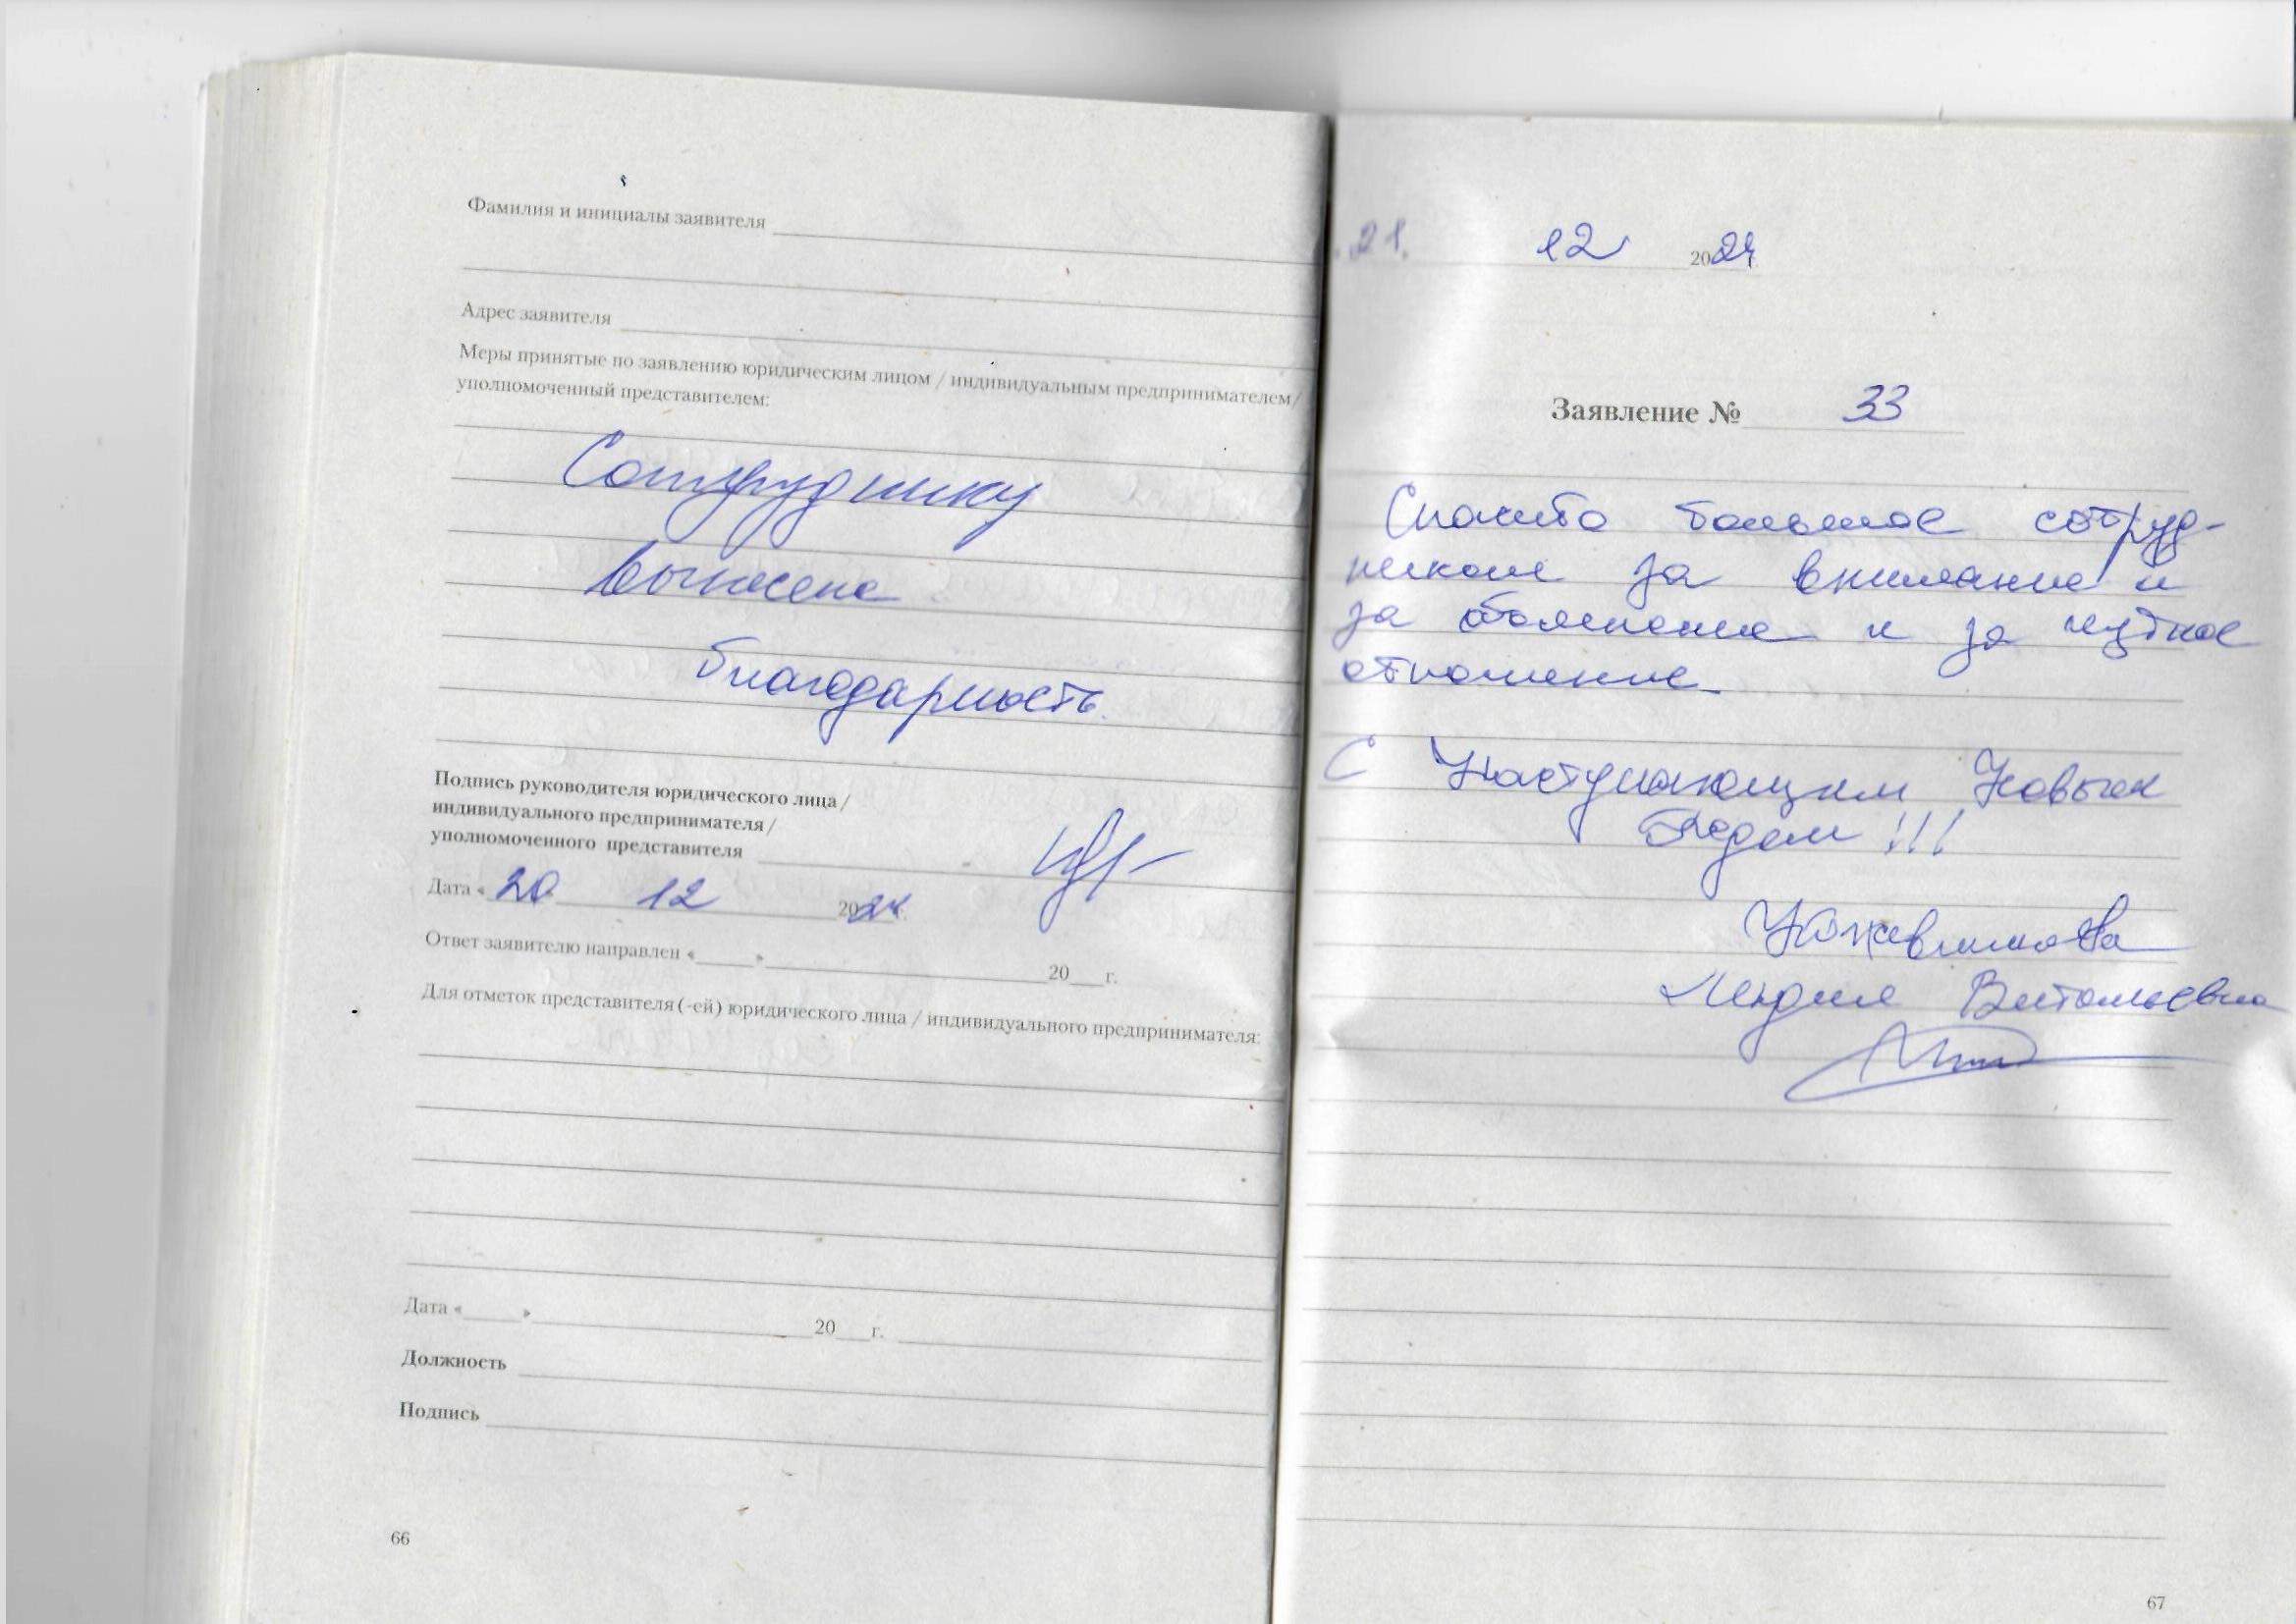 Фамилия и инициалы заявителя
Адрес заявителя
Меры принятые по заявлению юридическим лицом / индивидуальным предпринимателем/
уполномоченный представителем:
Сотруднику
вынесена
благодарность.
Подпись руководителя юридического лица /
индивидуального предпринимателя /
уполномоченного представителя
Дата « 20 12 2024
Ответ заявителю направлен « » 20 г.
Для отметок представителя (-ей) юридического лица / индивидуального предпринимателя:
Дата « » 20 г.
Должность
Подпись
66
21. 12 2024
Заявление № 33
Спасибо большое сотруд-
никам за внимание и
за объяснение и за чуткое
отношение.
С Наступающим Новым
Годом!!!
Лидия Витальевна
67